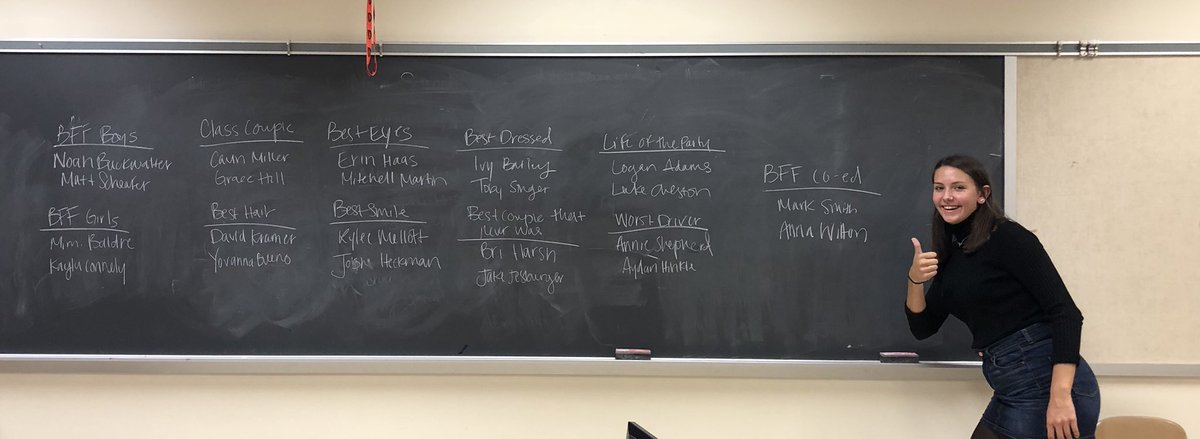 BFF Boys
Noah Buckwalter
Matt Scheafer
BFF Girls
Mimi Baldre
Kayla Connely
Class Couple
Cavin Miller
Grace Hill
Best Hair
David Kramer
Yovanna Bueno
Best Eyes
Erin Haas
Mitchell Martin
Best Smile
Kylee Mellott
Heckman
Best Dressed
Ivy
Toby Singer
Best couple that
never was
Bri Harsh
Jake
Life of the Party
Logan Adams
Luke
Worst Driver
Annie Shepherd
Aydan Hinkle
BFF co-ed
Mark Smith
Anna Wilton